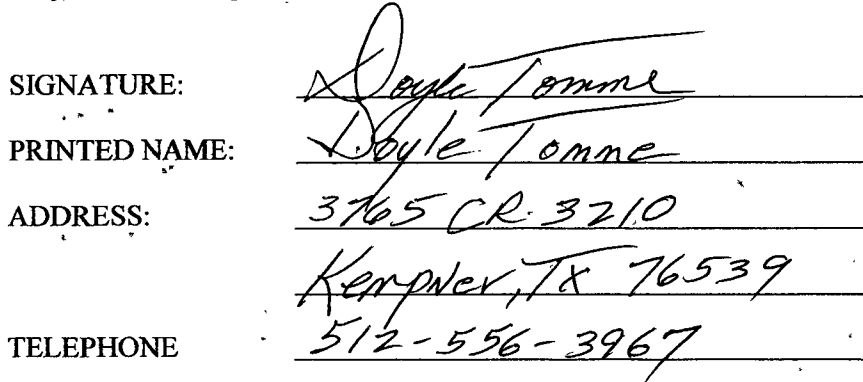 SIGNATURE: Doyle Tomme
PRINTED NAME: Doyle Tomme
ADDRESS: 3765 CR 3210
Kempner, TX 76539
TELEPHONE 512-556-3967